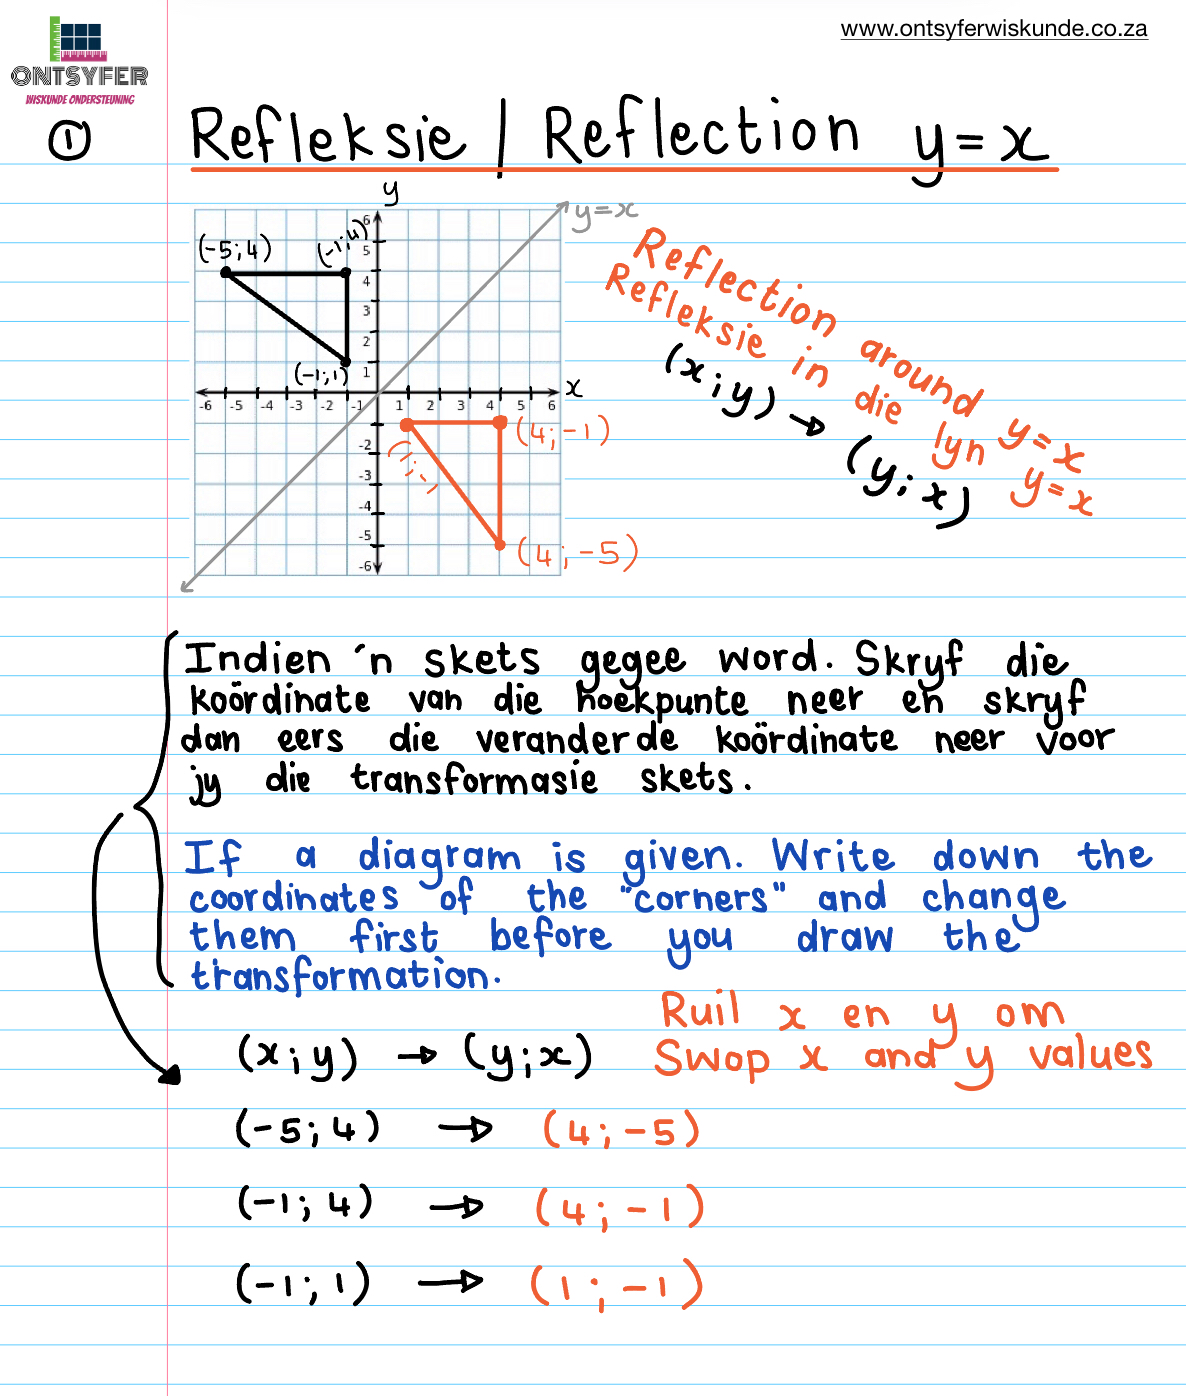 www.ontsyferwiskunde.co.za
ONTSYFER
WISKUNDE ONDERSTEUNING
① Refleksie | Reflection y=x
y
y=x
(-5;4) (-1;4)
(-1;1)
6
5
4
3
2
1
-6 -5 -4 -3 -2 -1 1 2 3 4 5 6 x
-2
-3
-4
-5
-6
(4;-1)
(1;-1
(4;-5)
Reflection around y=x
Refleksie in die lyn y=x
(x;y) → (y;x)
Indien 'n skets gegee word. Skryf die
koördinate van die hoekpunte neer en skryf
dan eers die veranderde koördinate neer voor
jy die transformasie skets.
If a diagram is given. Write down the
coordinates of the "corners" and change
them first before you draw the
transformation.
Ruil x en y om
(x;y) → (y;x) Swop x and y values
(-5;4) → (4;-5)
(-1;4) → (4;-1)
(-1;1) → (1;-1)